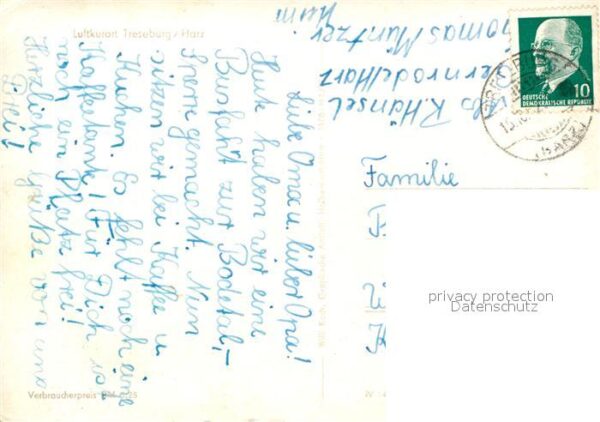 Luftkurort Treseburg/Harz
Liebe Oma u. lieber Opa!
Heute haben wir eine
Busfahrt zur Bodetal,-
Sperre gemacht. Nun
sitzen wir bei Kaffee u.
Kuchen. Es fehlt noch eine
Kaffeetante! Für Dich ist
noch ein Platz frei!
Herzliche Grüße von uns
Drei!
Verbraucherpreis
Abs. R. Hänsel
Gernrode/Harz
Thomas Müntzer
Heim
10
DEUTSCHE
DEMOKRATISCHE REPUBLIK
(HARZ)
Familie
privacy protection
Datenschutz